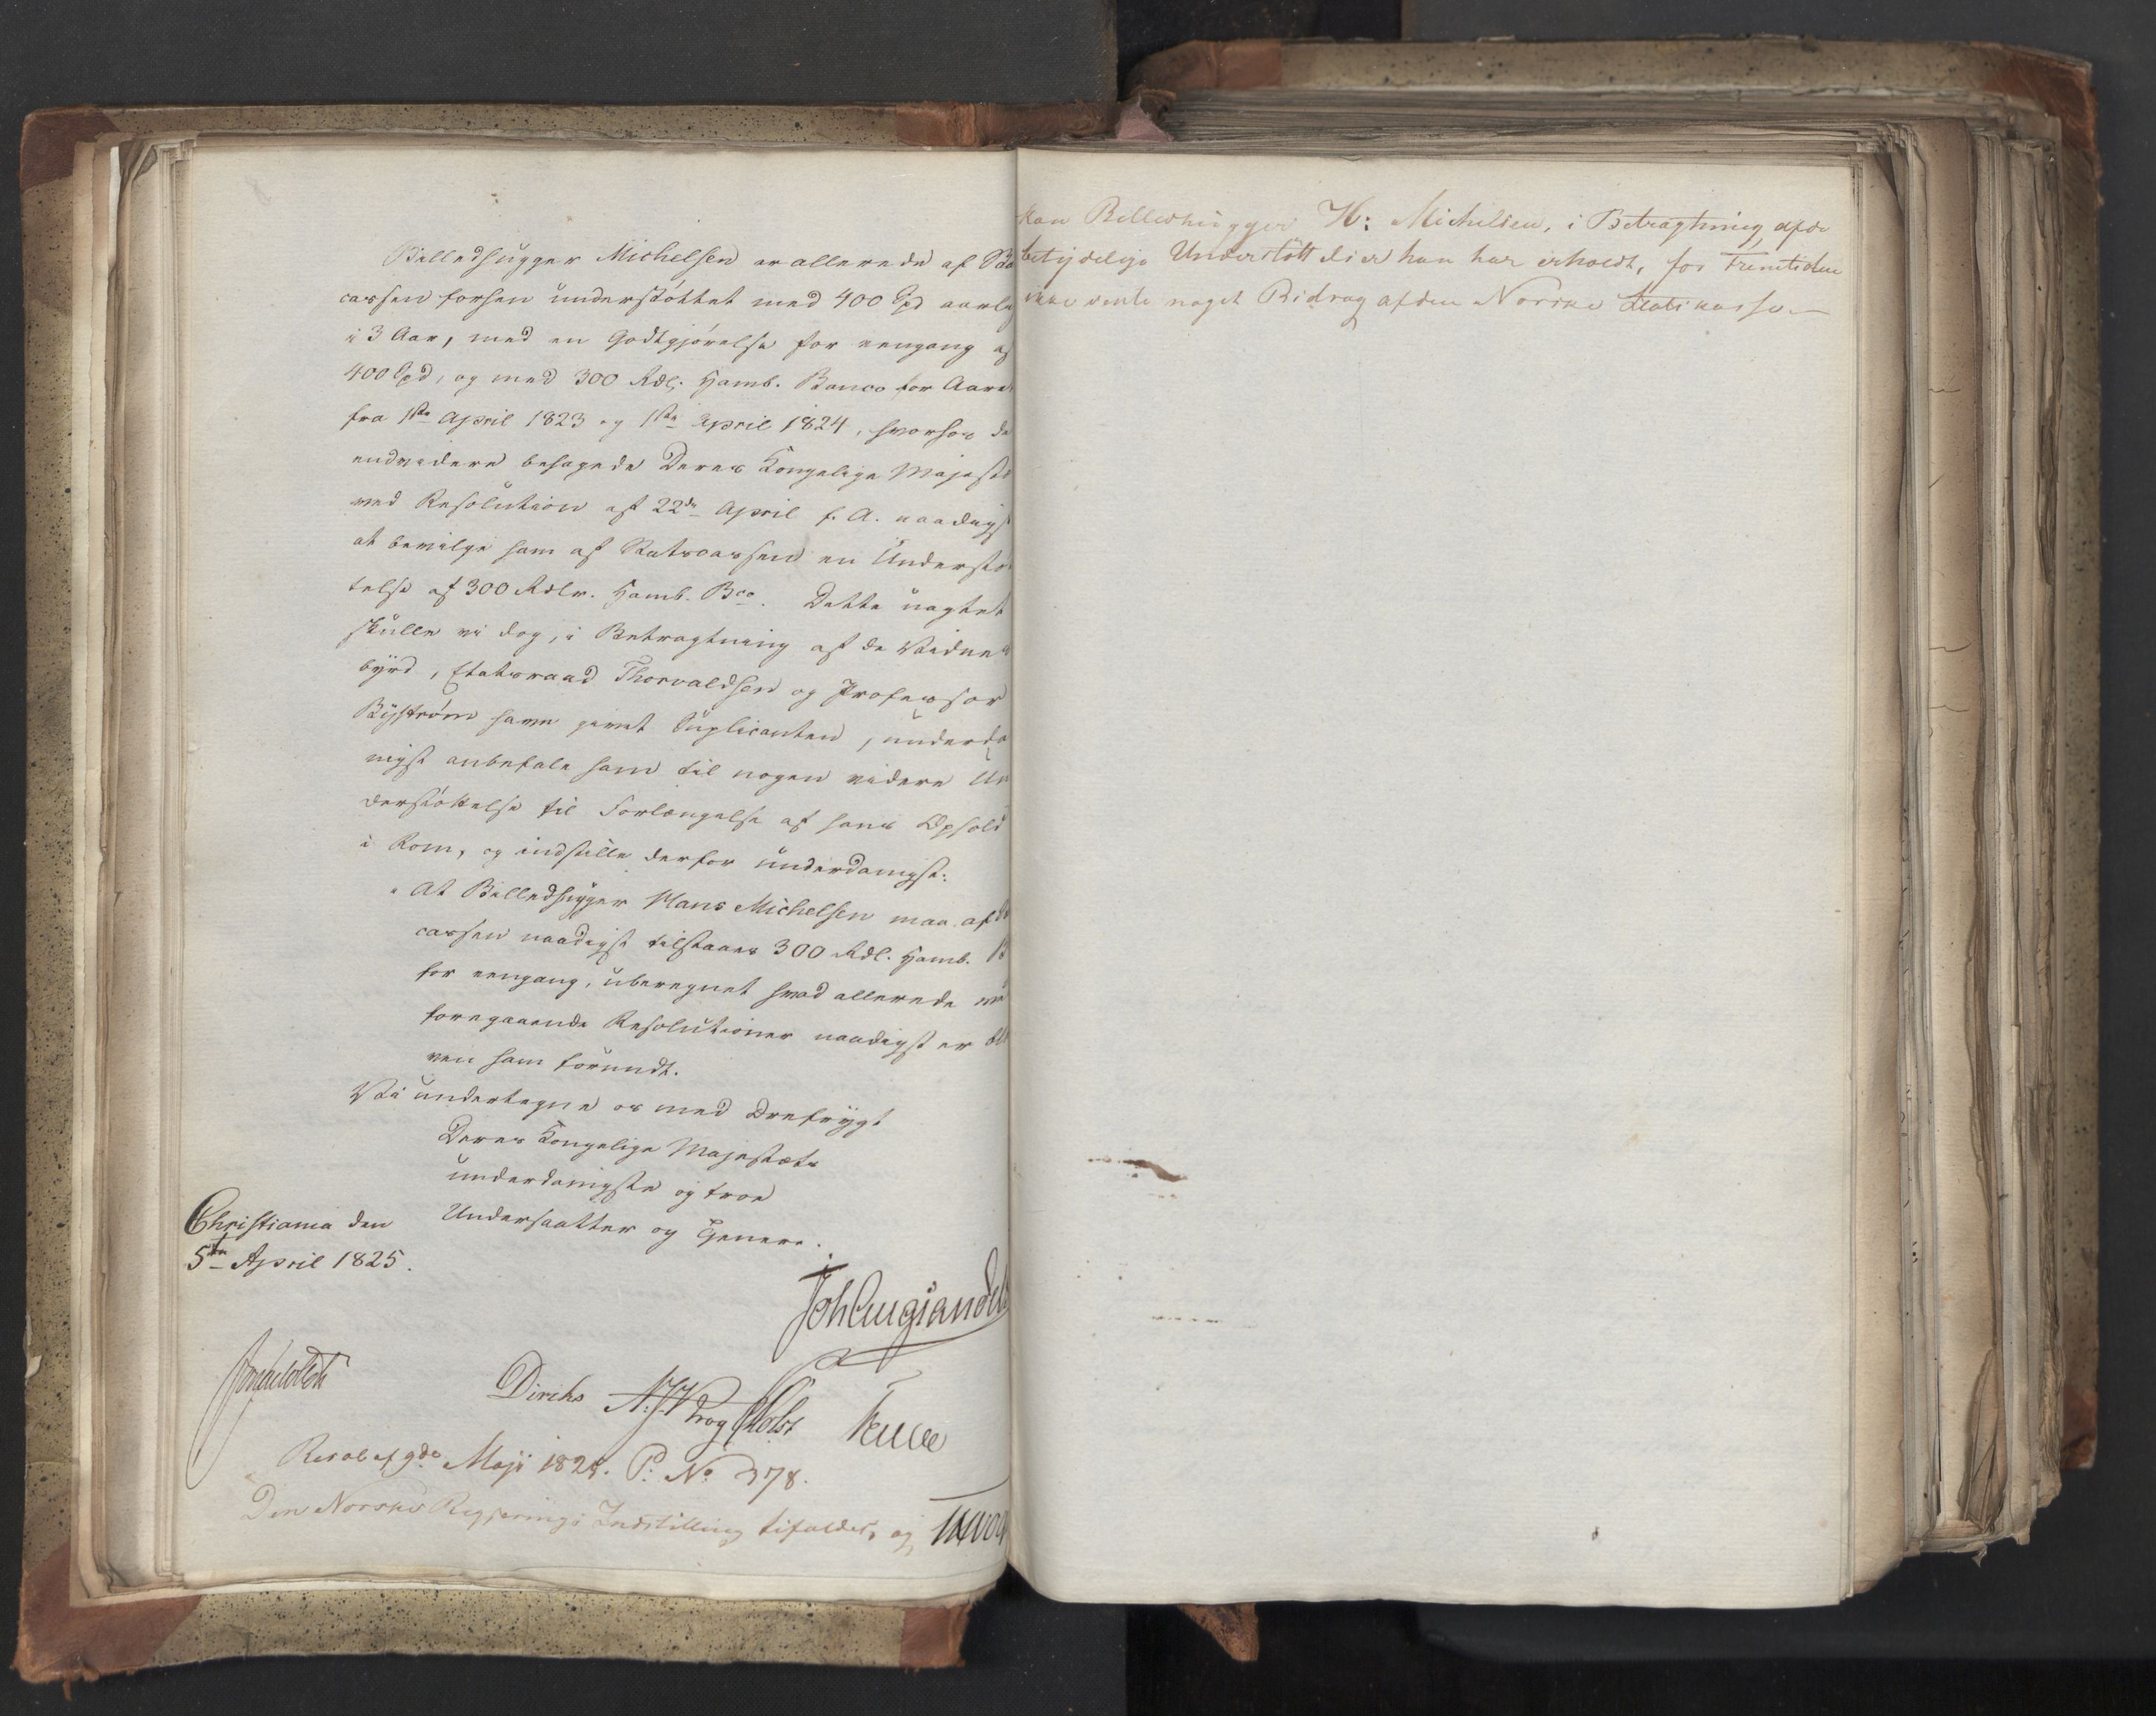 Billedhugger Michelsen er allerede af Sta
cassen forhen understøttet med 400 Spd aarlig
i 3 Aar, med en Godtgjørelse for eengang af
400 Spd, og med 300 Rdl. Hamb. Banco for Aaret
fra 1ste April 1823 og 1ste April 1824, hvorhos de
endvidere behagede Deres Kongelige Majestæ
ved Resolution af 22de April f. A. naadigst
at bevilge ham af Statscassen en Understø
telse af 300 Rdlr. Hamb. Bco. Dette uagtet
skulle vi dog, i Betragtning af de Vidnes
byrd, Etatsraad Thorvaldsen og Professor
Byström have givet Suplicanten, underda
nigst anbefale ham til nogen videre Un
derstøttelse til Forlængelse af hans Ophold
i Rom, og indstille derfor underdanigst:
"At Billedhugger Hans Michelsen maa af
cassen naadigst tilstaaes 300 Rdl. Hamb. B
for eengang, uberegnet hvad allerede ve
foregaaende Resolutioner naadigst er ble
ven ham forundt.
Vi undertegne os med Ærefrygt
Deres Kongelige Majestæts
underdanigste og troe
Undersaatter og Tjenere.
Christiania den
5te April 1825.
Joh Aug Sandels
Sommerhielm
Diriks N: J: Krog Holst
Resol af 9de Maji 1825. P: No 378.
"Den Norske Regjerings Indstilling bifaldes, og
kan Billedhugger H: Michelsen, i Betragtning af de
betydelige Understøttelser han har erholdt, for Fremtiden
ikke vente noget Bidrag af den Norske Statskasse.